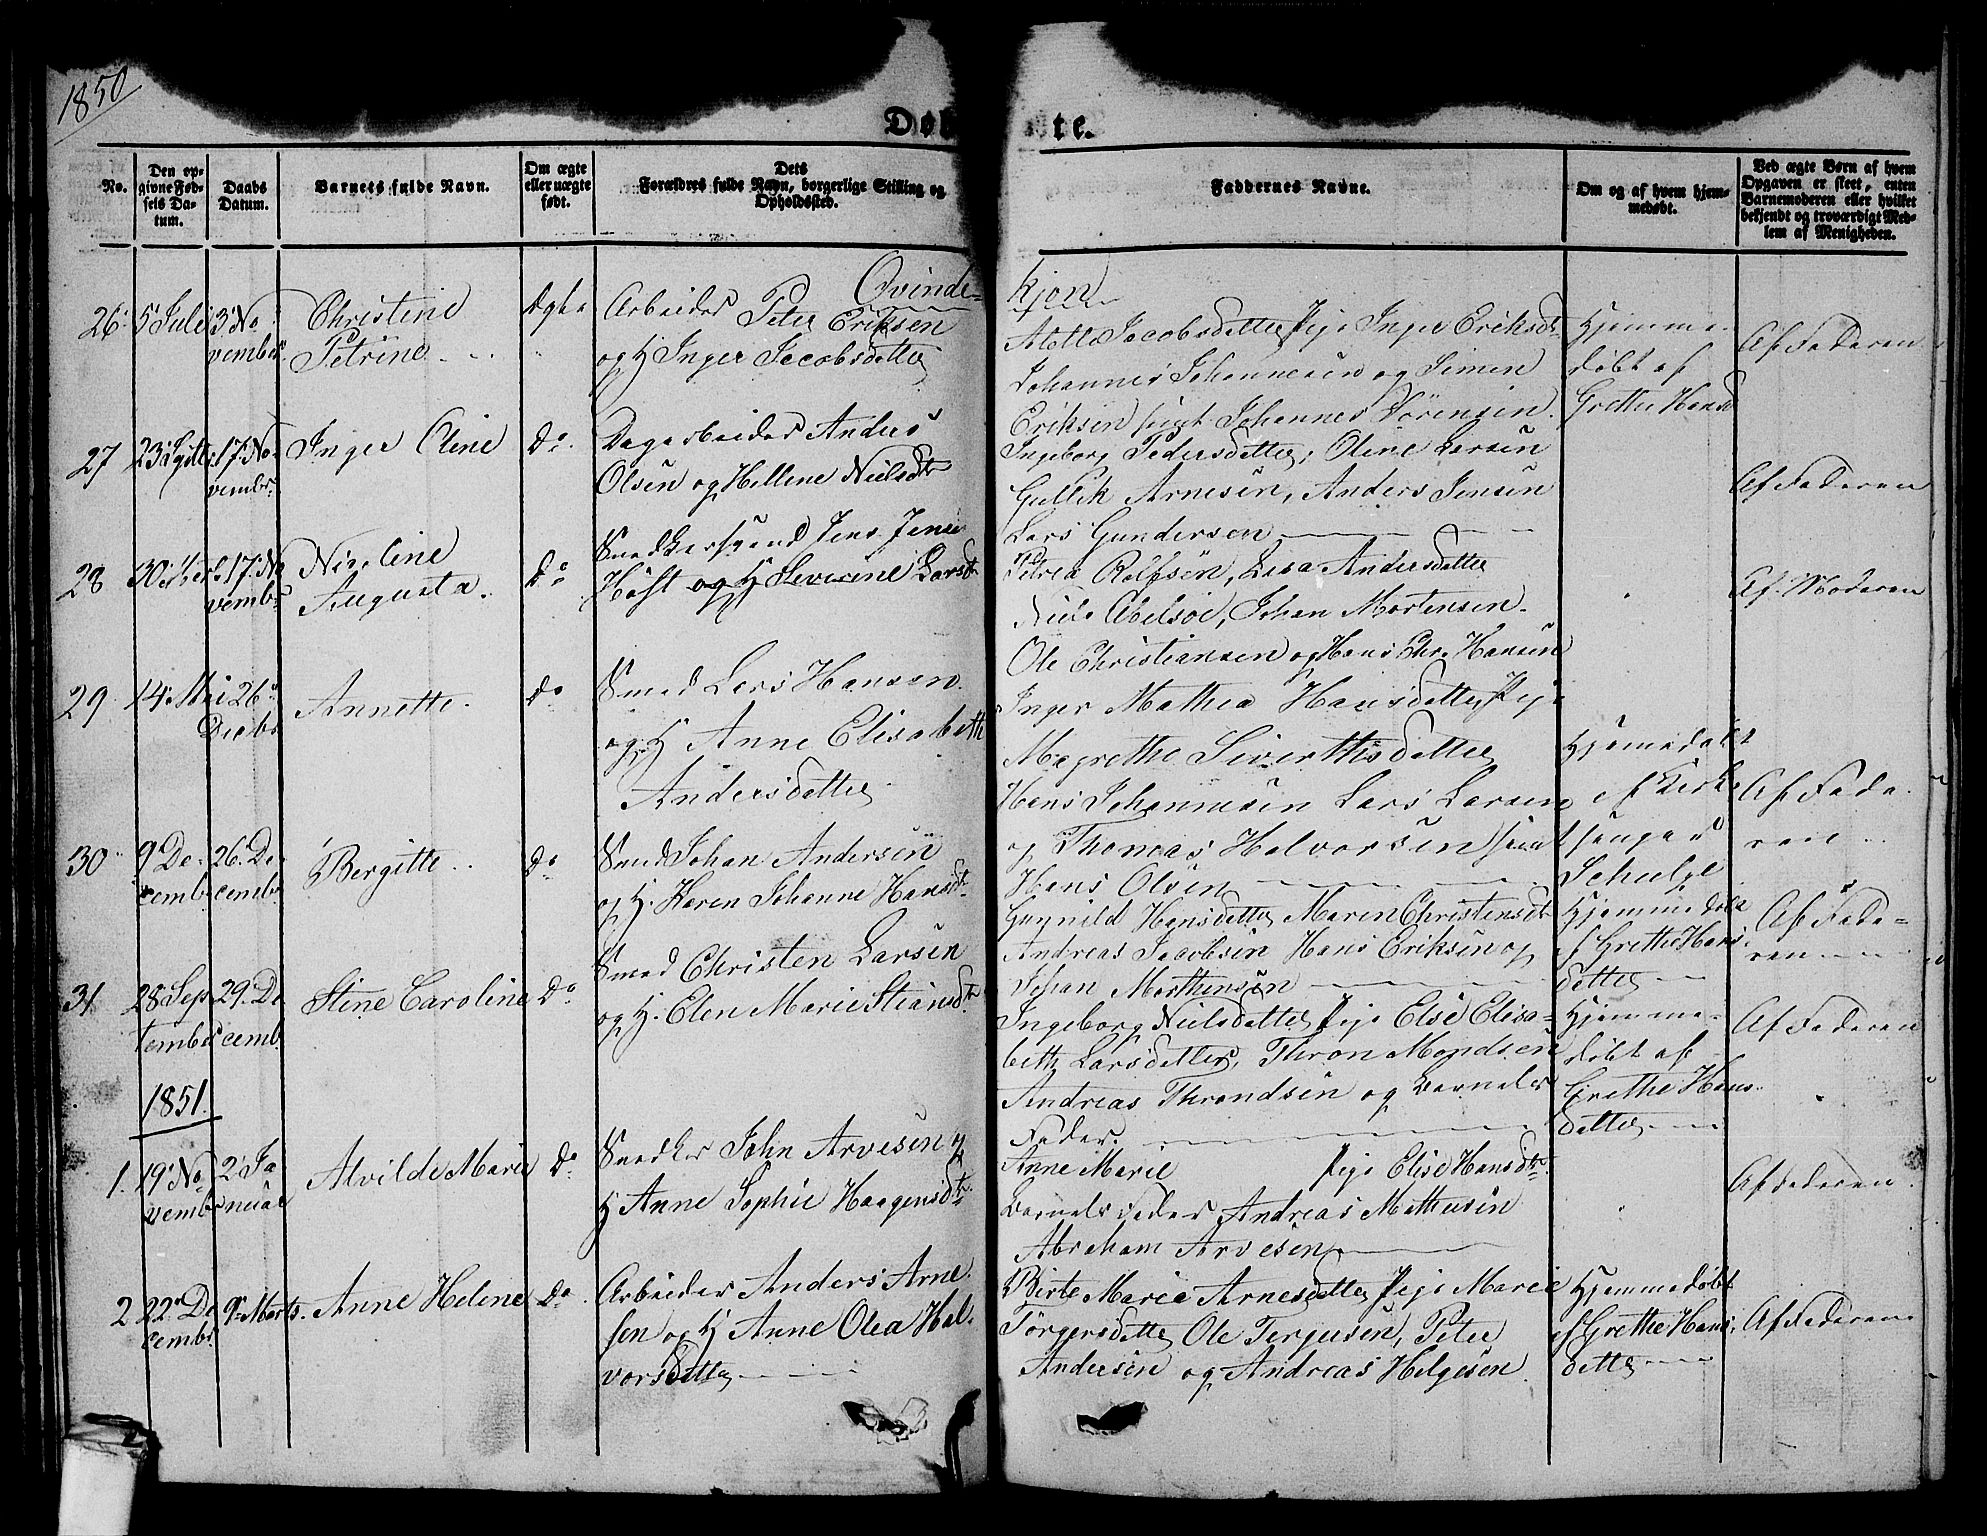 1850
Døbte.
No.
Den opgivne Fødsels Datum.
Daabs Datum.
Barnets fulde Navn.
Om ægte eller uægte født.
Dets Forældres fulde Navn, borgerlige Stilling og Opholdssted.
Faddernes Navne.
Om og af hvem hjemmedøbt.
Ved ægte Børn af hvem Opgaven er skeet, enten Barnemoderen eller hvilket bekjendt og troværdigt Medlem af Menigheden.
Qvinde-
kjøn
26 5 Juli 3 No
vember
Christine
Petrine
Ægte
Arbeider Peter Eriksen
og H Inger Jacobsdatter
Jacobsdatter Pige Inger Eriksdt
Johannes Johannesen og Simen
Eriksen samt Johannes Sörensen
Hjemme
döbt af
Grethe Hansd
Af Faderen
27 23 17 No
vembr
Inger Oline
Do
Dagarbeider Anders
Olsen og Hellene Nielsdt
Ingeborg Pedersdatter, Oline Larsen
Gullik Arnesen, Anders Jensen
Lars Gundersen
Af Faderen
28 30 17 No
vembr
Nicoline
Augusta
Do
Snedkersvend Jens Jensen
Höst og H Severine Larsdt
Petrea Rolfsen, Lisa Andersdatter
Niels Abelsöe, Johan Mortensen
Ole Christiansen og Hans Chr. Hansen
Af Moderen
29 14 Mai 26
Decbr
Annette
Do
Smed Lars Hansen
og H Anne Elisabeth
Andersdatter
Inger Mathea Hansdatter, Pige
Magrethe Siverttsdatter
Hans Johannesen Lars Larsen
og Thomas Halvorsen samt
Hans Olsen
Hjemedöbt
af Kirke
sanger
Schulze
Af Fade
ren
30 9 De
cembr
26 De
cembr
Bergitte
Do
Smed Johan Andersen
og H. Karen Johanne Hansdt
Gunnild Hansdatter Maren Christensdt
Andreas Jacobsen Hans Eriksen og
Johan Morthensen
Hjemmedöbt
af Grethe Hans
datter
Af Fade-
ren
31 28 Sep
tember
29 De
cembr
Stine Caroline
Do
Smed Christen Larsen
og H. Elen Marie Stiansdt
Ingeborg Nielsdatter Pige Else Elisa-
beth Larsdatter, Thron Mondsen
Andreas Throndsen og Barnets
Fader.
Hjemme-
döbt af
Grethe Hans
datter
Af Faderen
1851.
1. 19 No
vembr
2 Ja
nuar
Alvilde Marie
Do
Snedker John Arvesen og
H Anne Sophie Haagensdt
Anne Marie Pige Elise Hansdt
Barnets Fader Andreas Mathesen
Abraham Arvesen
Af Faderen
2 22 De
cembr
9 Marts
Anne Helene
Do
Arbeider Anders Arne
sen og H Anne Olea Hal-
vorsdatter
Birte Marie Arnesdatter Pige Marie
Törgersdatter Ole Terjesen, Peter
Andersen og Andreas Helgesen
Hjemmedöbt
af Grethe Hans
datter
Af Faderen